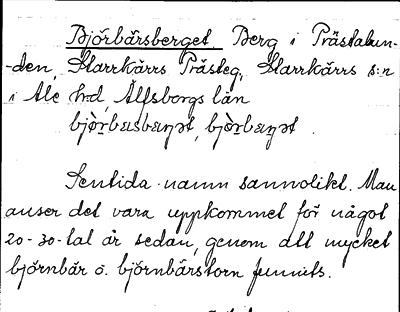 Björbärsberget Berg i Prästalun-
-den, Starrkärrs Prästeg, Starrkärrs s:n
i Ale hd, Älfsborgs län
Sentida namn sannolikt. Man
anser det vara uppkommet för något
20-30-tal år sedan, genom att mycket
björnbär o. björnbärstorn funnits.